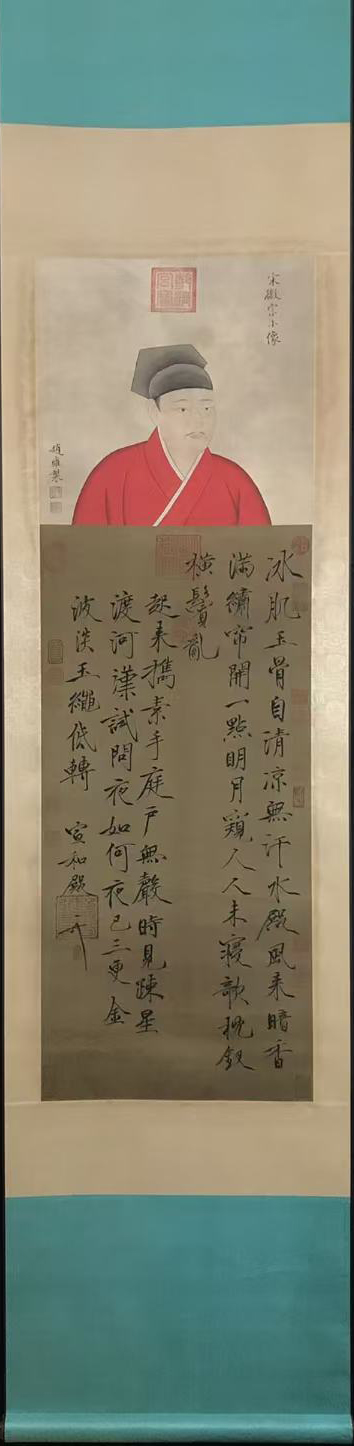 宋徽宗小像
趙雍製
冰肌玉骨自清凉無汗水殿風来暗香
滿繡帘開一點明月窺人人未寢欹枕釵
橫鬢亂
起来攜素手庭戶無聲時見疎星
渡河漢試問夜如何夜已三更金
波淡玉繩低轉
宣和殿